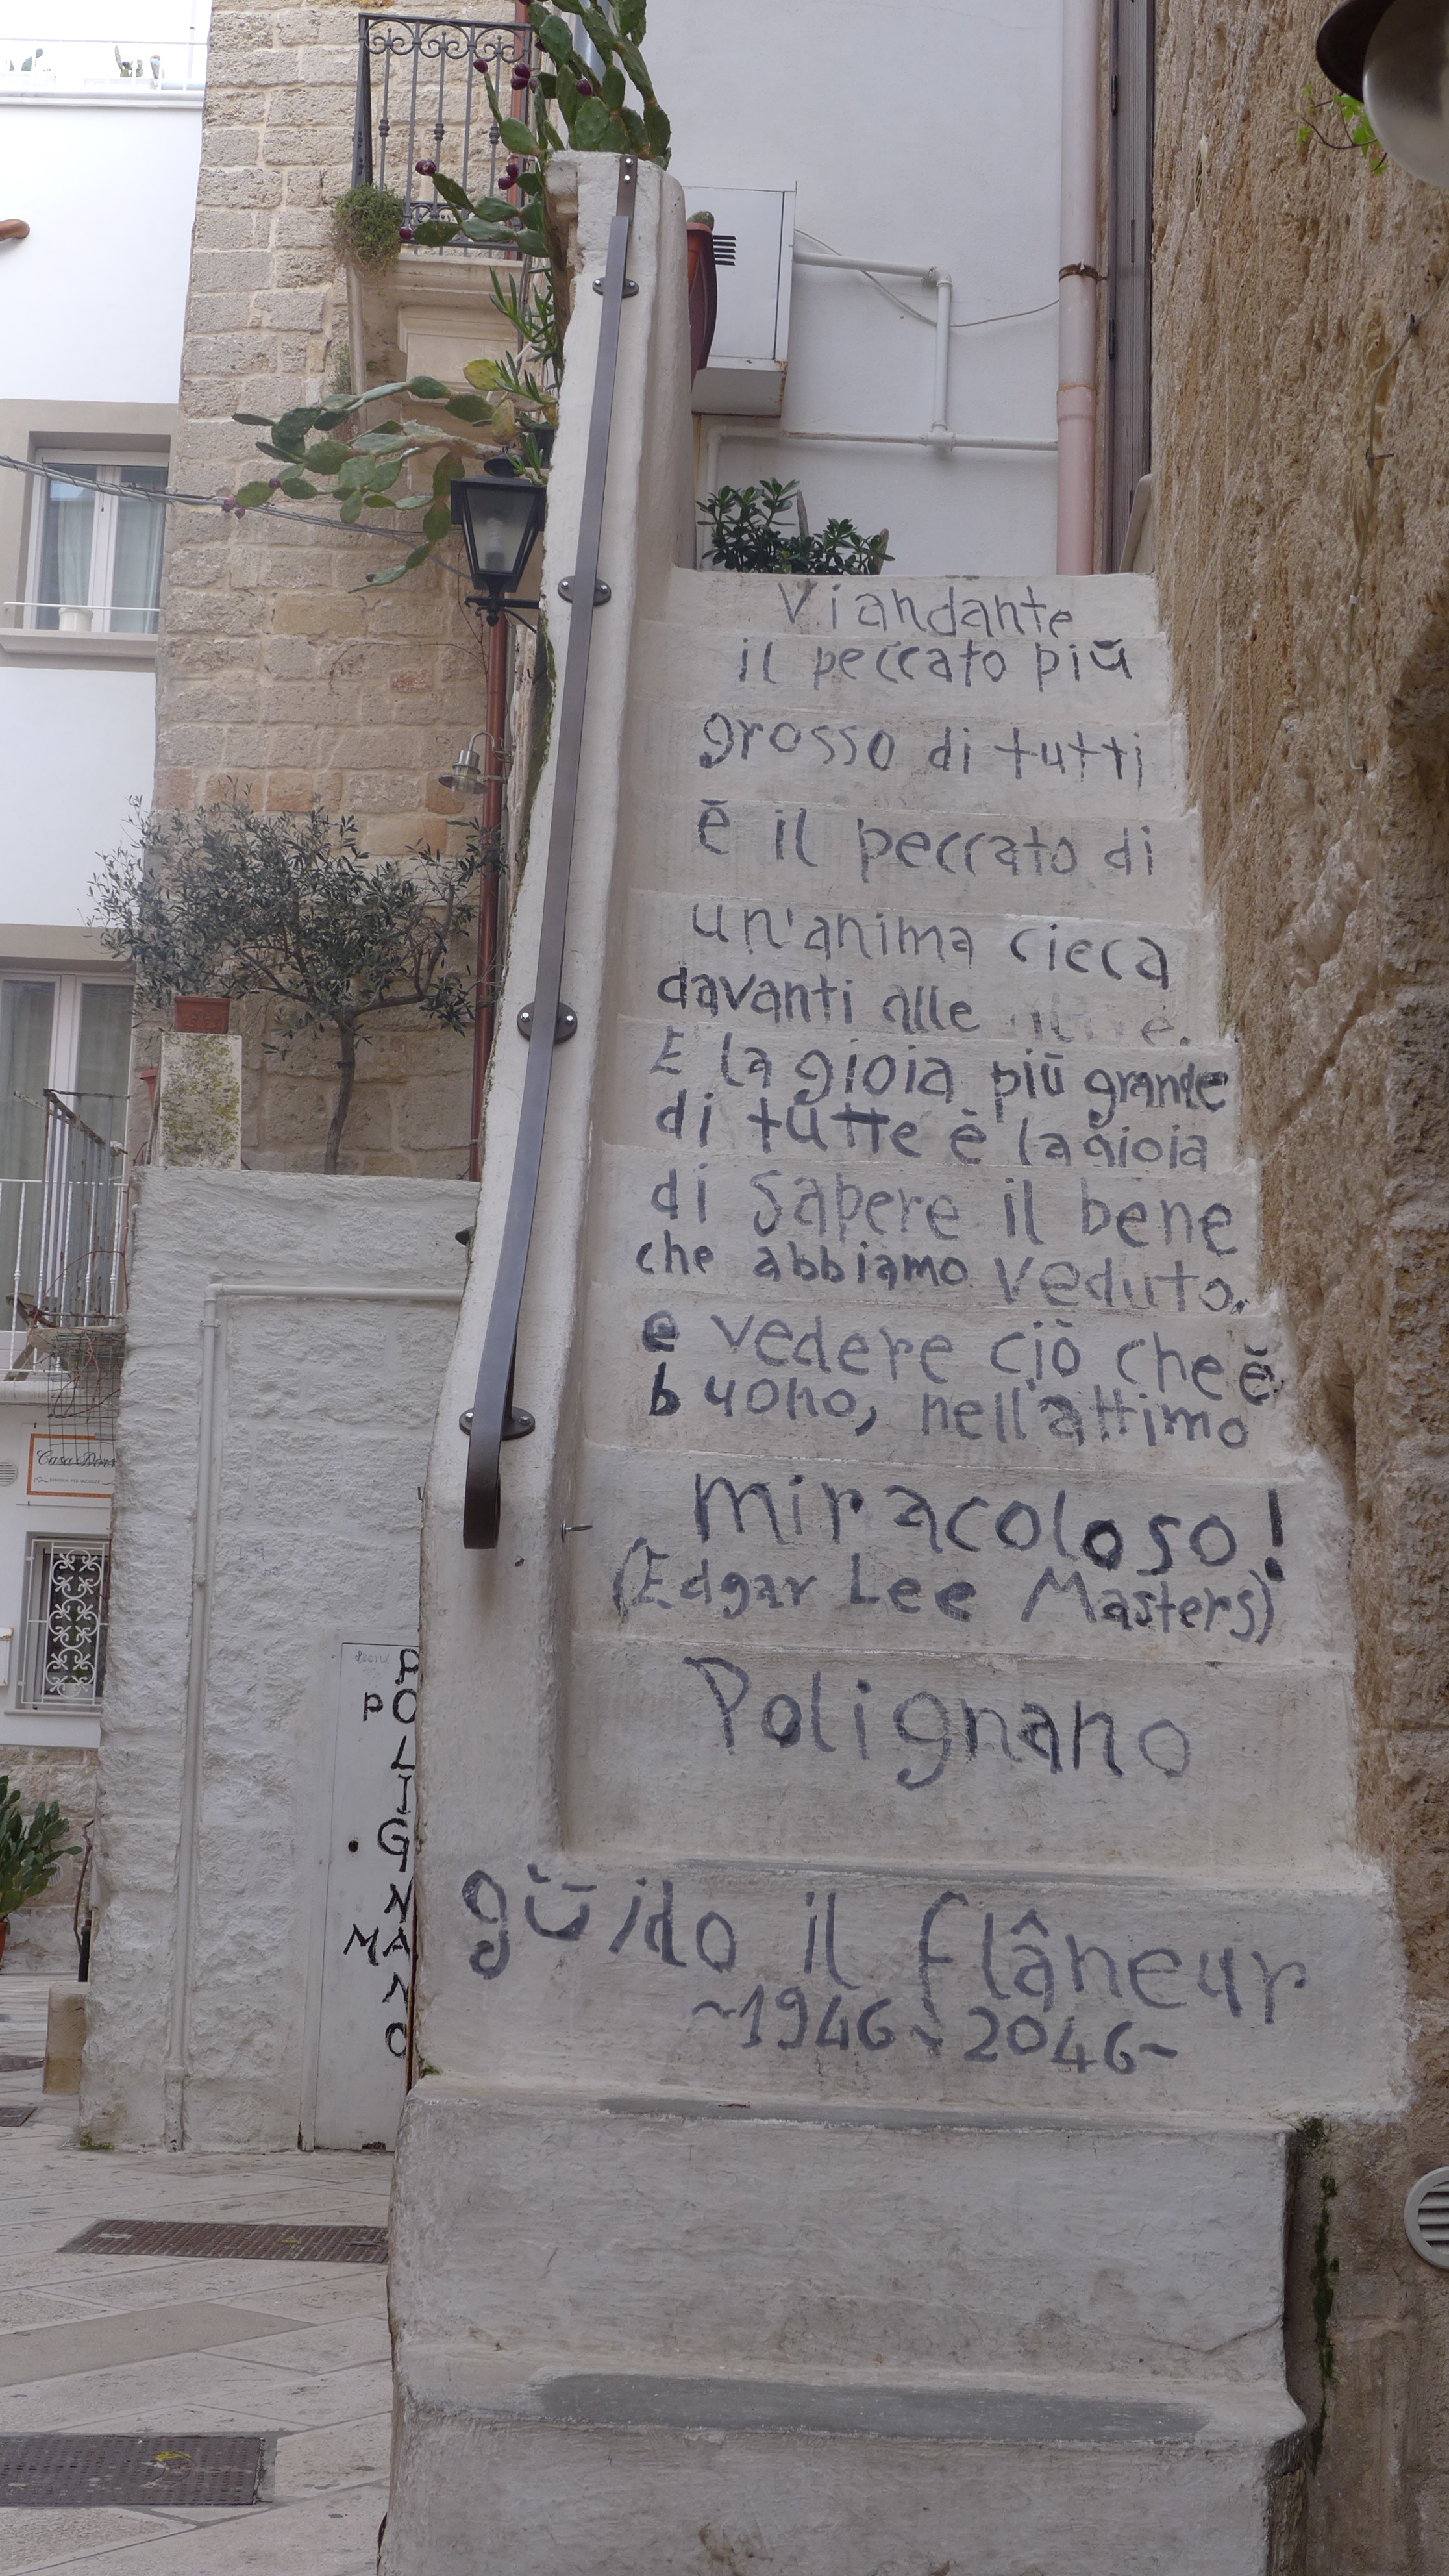 Viandante
il peccato più
grosso di tutti
è il peccato di
un'anima cieca
davanti alle
E la gioia più grande
di tutte è la gioia
di sapere il bene
che abbiamo veduto.
e vedere ciò che è
buono, nell'attimo
miracoloso!
(Edgar Lee Masters)
Polignano
güido il flâneur
~1946 \ 2046~
POLIGNANO
P
MA
Casa Dors